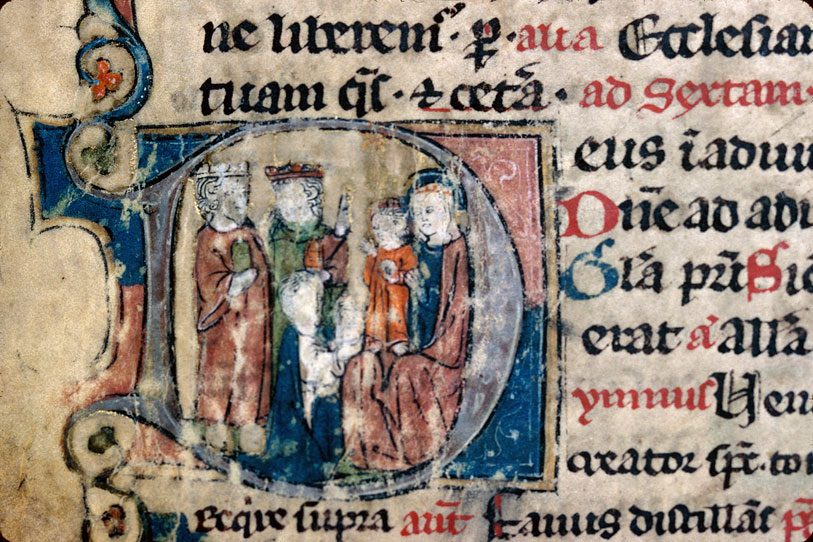 ne liberem᷒ · ꝑ · alia Ecclesiam
tuam q̄s · ⁊ cetā · ad Sextam ·
D eus ī adiu
Dn̄e ad adi
Gl̄a pr̄i Sic
erat a᷒ all̄a
ymnus Uen
creator sp̄r
Req̄re supra an̄t Fauus distillāt